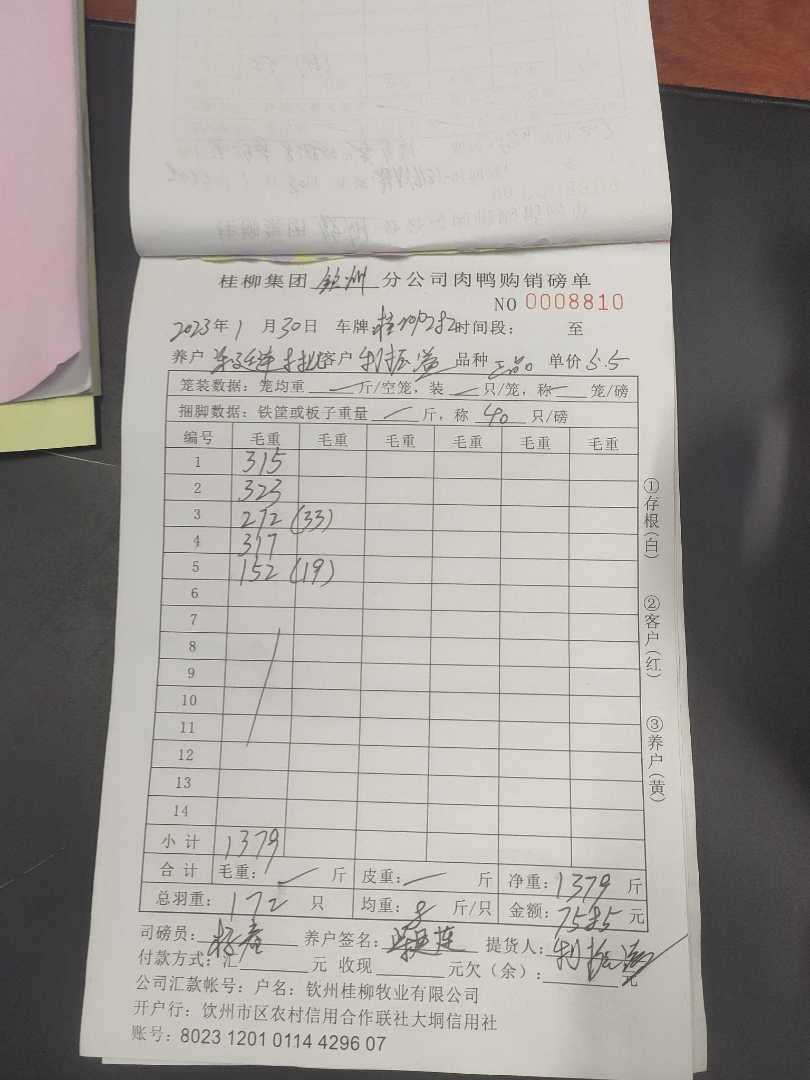 桂柳集团 钦州 分公司肉鸭购销磅单
NO 0008810
2023年1月30日 车牌 时间段: 至
养户 客户 品种 三品 单价 5.5
笼装数据: 笼均重 斤/空笼, 装 只/笼, 称 笼/磅
捆脚数据: 铁筐或板子重量 斤, 称 40 只/磅
编号 毛重 毛重 毛重 毛重 毛重 毛重
1 315
2 323
3 272 (33)
4 317
5 152 (19)
6
7
8
9
10
11
12
13
14
小计 1379
合计 毛重: 斤 皮重: 斤 净重: 1379 斤
总羽重: 172 只 均重: 8 斤/只 金额: 7585 元
司磅员: 养户签名: 提货人:
付款方式: 汇 元 收现 元欠(余): 元
公司汇款帐号: 户名: 钦州桂柳牧业有限公司
开户行: 钦州市区农村信用合作联社大垌信用社
账号: 8023 1201 0114 4296 07
①存根(白)
②客户(红)
③养户(黄)